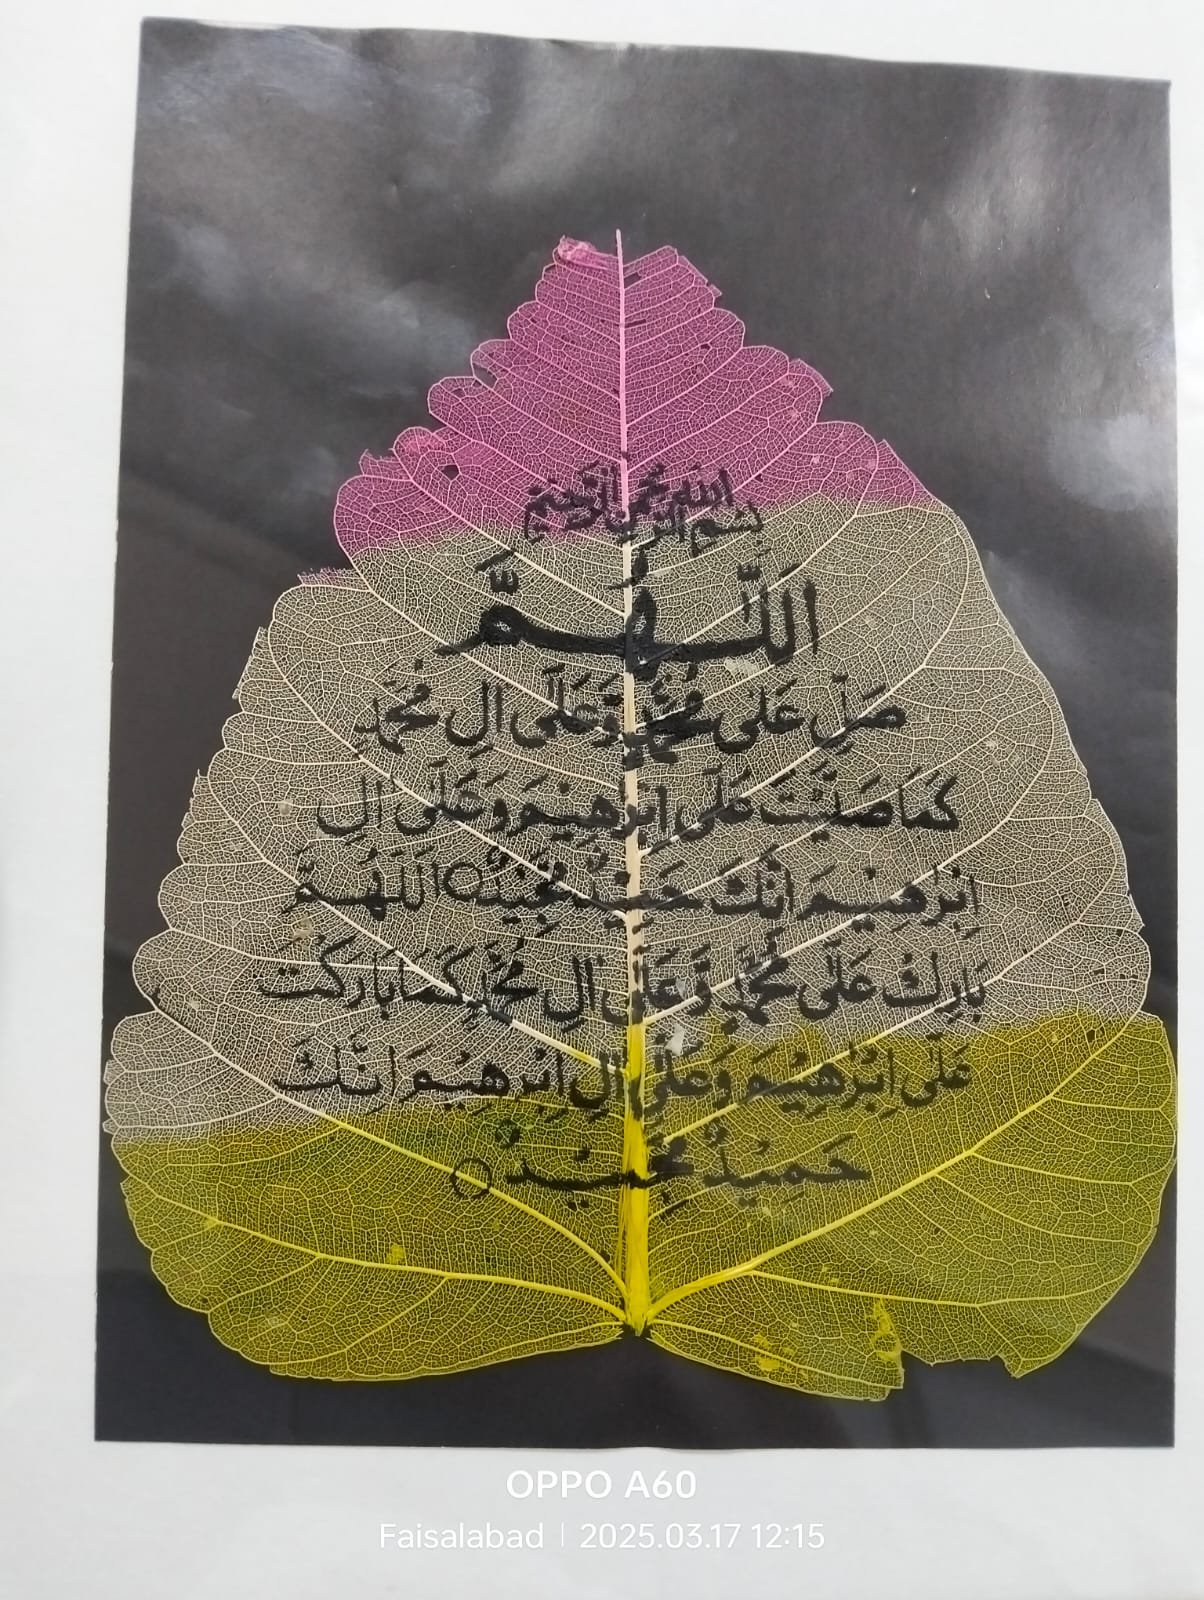 بسم الله الرحمن الرحيم
اَللّٰهُمَّ
صَلِّ عَلٰى مُحَمَّدٍ وَّعَلٰٓى اٰلِ مُحَمَّدٍ
كَمَا صَلَّيْتَ عَلٰٓى اِبْرٰهِيْمَ وَعَلٰٓى اٰلِ
اِبْرٰهِيْمَ اِنَّكَ حَمِيْدٌ مَّجِيْدٌ ○ اَللّٰهُمَّ
بَارِكْ عَلٰى مُحَمَّدٍ وَّعَلٰٓى اٰلِ مُحَمَّدٍ كَمَا بَارَكْتَ
عَلٰٓى اِبْرٰهِيْمَ وَعَلٰٓى اٰلِ اِبْرٰهِيْمَ اِنَّكَ
حَمِيْدٌ مَّجِيْدٌ ○
OPPO A60
Faisalabad | 2025.03.17 12:15